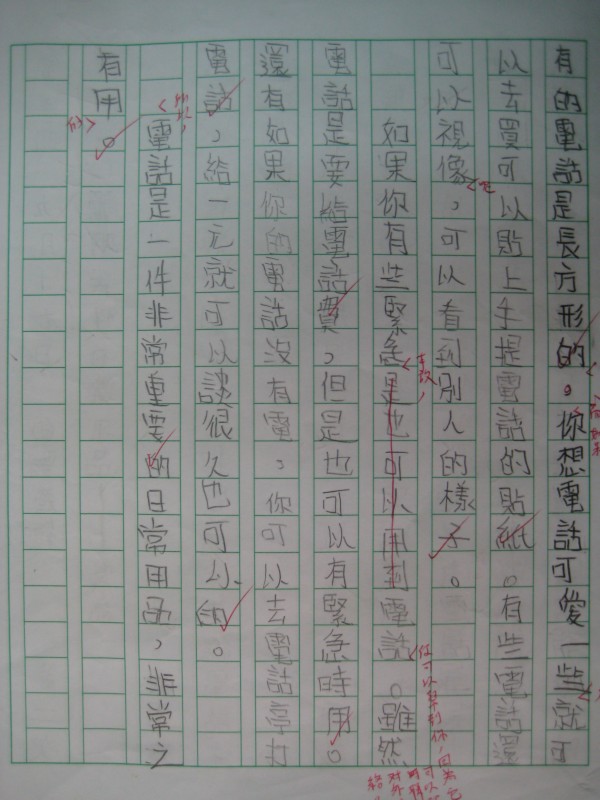 有的電話是長方形的。你想電話可愛一些就可
以去買可以貼上手提電話的貼紙。有些電話還
可以視像，可以看到別人的樣子。
如果你有些緊急是也可以用到電話。雖然
電話是要給電話費，但是也可以有緊急時用。
還有如果你的電話沒有電。你可以去電話亭打
電話，給一元就可以談很久也可以的。
所以，
電話是一件非常重要的日常用品，非常之
有用。